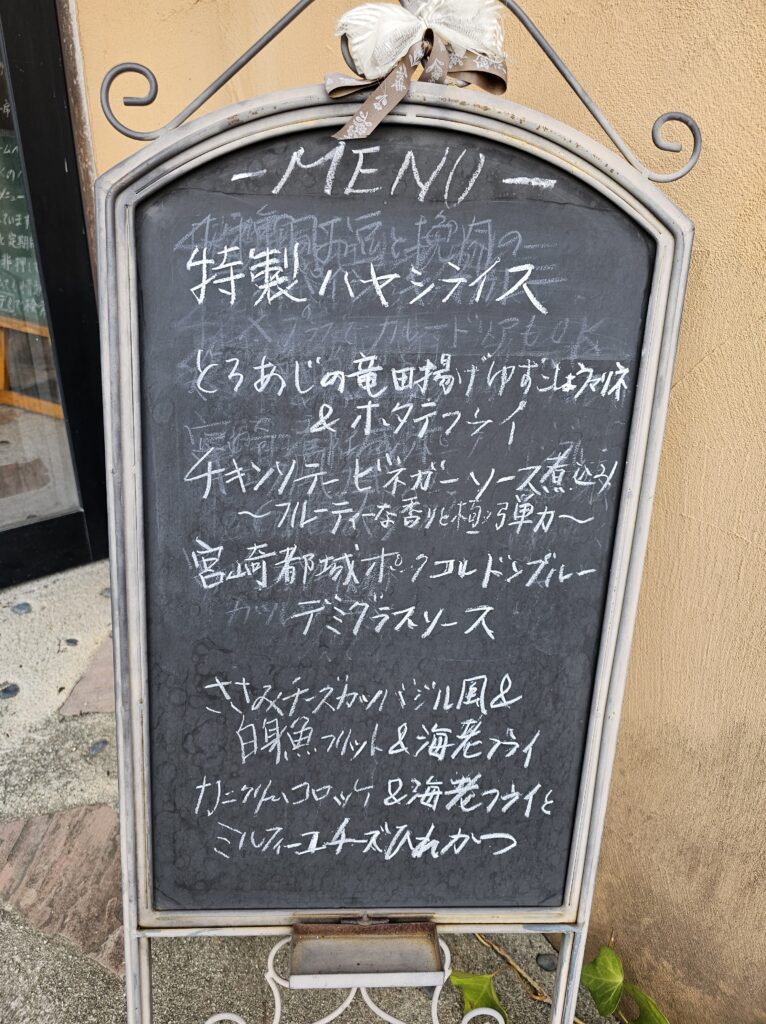 -MENU-
特製ハヤシライス
とろあじの竜田揚げゆずこしょうマリネ
&ホタテフライ
チキンソテービネガーソース煮込み
～フルーティーな香りと極う弾力～
宮崎都城ポークコルドンブルー
デミグラスソース
ささみチーズカツバジル風&
白身魚フリット&海老フライ
カニクリームコロッケ&海老フライと
ミルフィーユチーズひれかつ